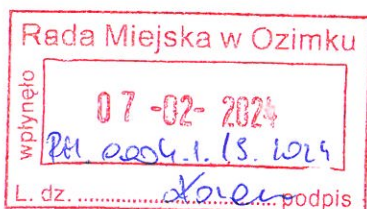 Rada Miejska w Ozimku
wpłynęło
07-02-2024
RM.0004.1.15.2024
L. dz. .................... podpis